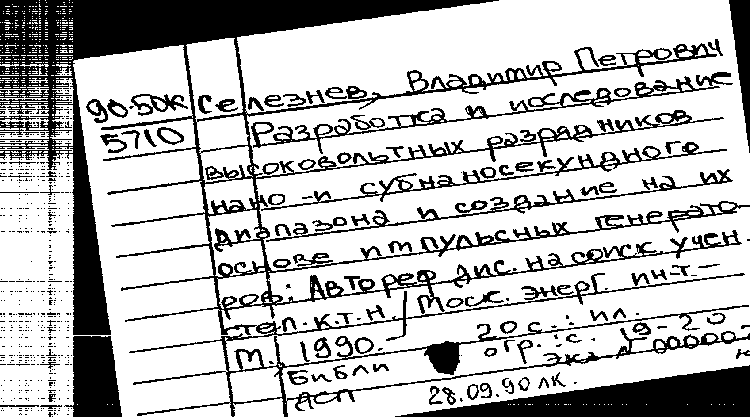 90-50К Селезнев, Владимир Петрович
5710 Разработка и исследование
высоковольтных разрядников
нано-и субнаносекундного
диапазона и создание на их
основе импульсных генерато-
ров: Автореф дис. на соиск. учен.
степ. к.т.н. / Моск. энерг. ин-т.-
М., 1990.- 20 с.: ил.
Библиогр.: с. 19-20
ДСП Экз N 000002
28.09.90 ЛК.